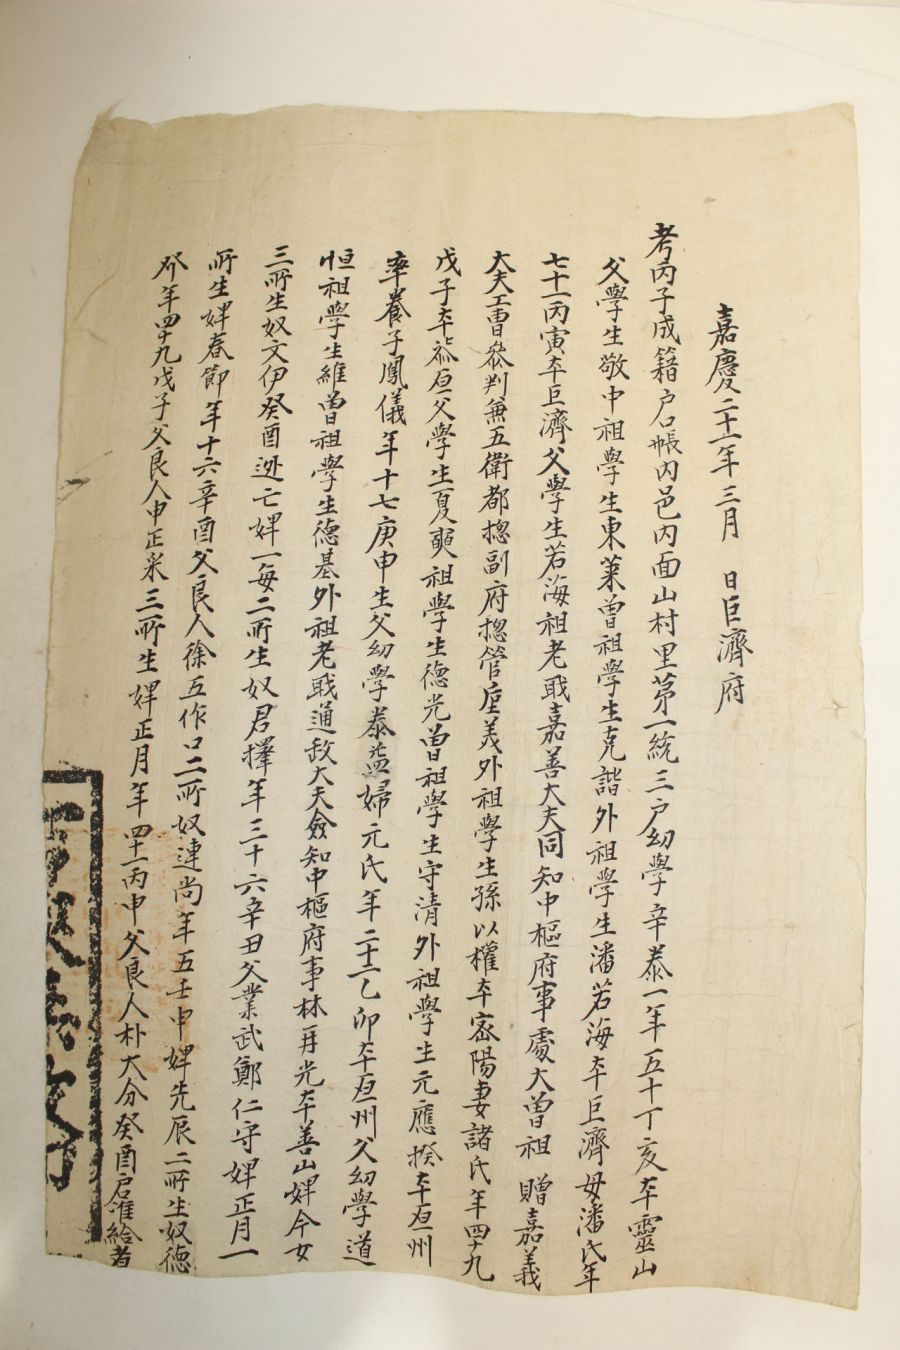 嘉慶二十一年三月　日巨濟府
考丙子成籍户口帳內邑內面山村里苐一統三户幼學辛泰一年五十丁亥本靈山
父學生敬中祖學生東萊曾祖學生克諧外祖學生潘若海本巨濟母潘氏年
七十一丙寅本巨濟父學生若海祖老職嘉善大夫同知中樞府事處大曾祖　贈嘉義
大夫工曹叅判兼五衛都摠副府摠管座義外祖學生孫以權本密陽妻諸氏年四十九
戊子本柒原父學生夏奭祖學生德光曾祖學生守清外祖學生元應揆本原州
率養子鳳儀年十七庚申生父幼學泰益婦元氏年二十二乙卯本原州父幼學道
恒祖學生維曾祖學生德基外祖老職通政大夫僉知中樞府事林再光本善山婢今女
三所生奴文伊癸酉逃亡婢一每二所生奴君擇年三十六辛丑父業武鄭仁守婢正月一
所生婢春節年十六辛酉父良人徐五作口二所奴連尚年五壬申婢先辰二所生奴德
介年四十九戊子父良人申正采三所生婢正月年四十一丙申父良人朴大分癸酉户准給者